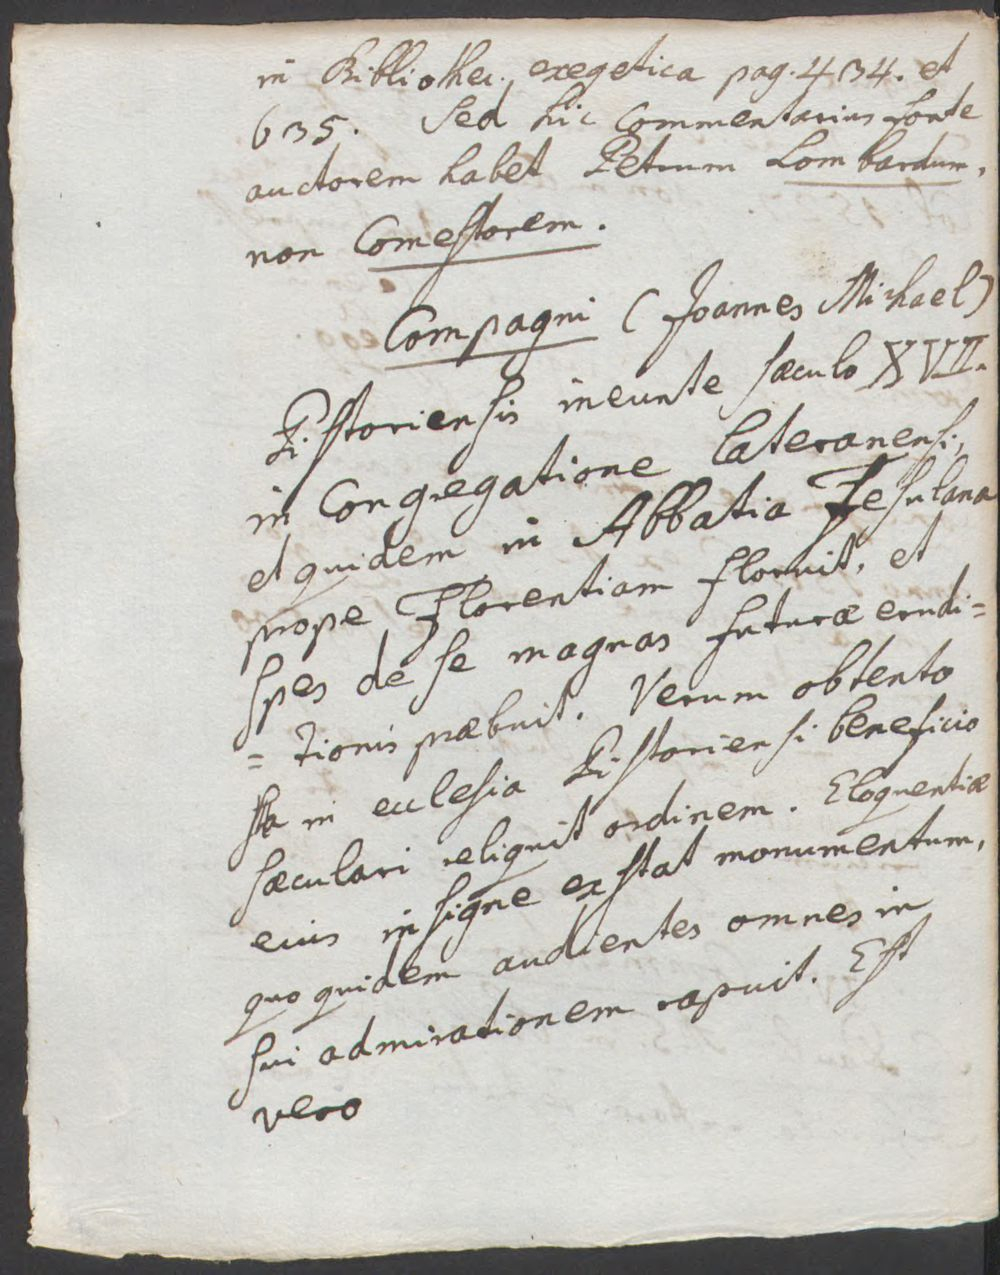 in Bibliothec. exegetica pag. 434. et
635. Sed hic Commentarius forte
auctorem habet Petrum Lombardum,
non Comestorem.
Compagni (Joannes Michael)
Pistoriensis ineunte sæculo XVII.
in Congregatione Lateranensi,
et quidem in Abbatia Fesulana
prope Florentiam floruit, et
spes de se magnas futuræ erudi=
=tionis præbuit. Verum obtento
in ecclesia Pistoriensi beneficio
sæculari reliquit ordinem. Eloquentiæ
eius insigne exstat monumentum,
quo quidem audientes omnes in
sui admirationem rapuit. Est
vero